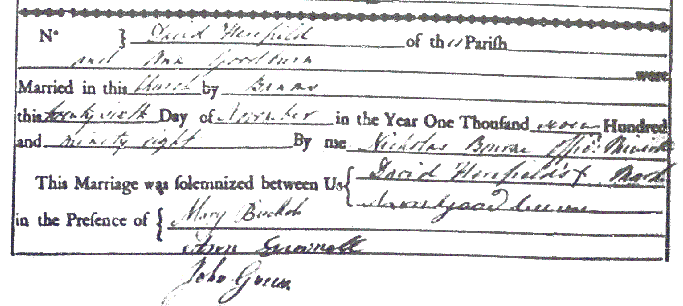 No } David Henfield of this Parish
and Ann Goodburn were
Married in this Church by Banns
this twenty sixth Day of November in the Year One Thousand seven Hundred
and ninety eight By me Nicholas Bourne Offic: Minister
This Marriage was solemnized between Us { David Henfield's X Mark
in the Presence of { Mary Buckol
Ann
John Green